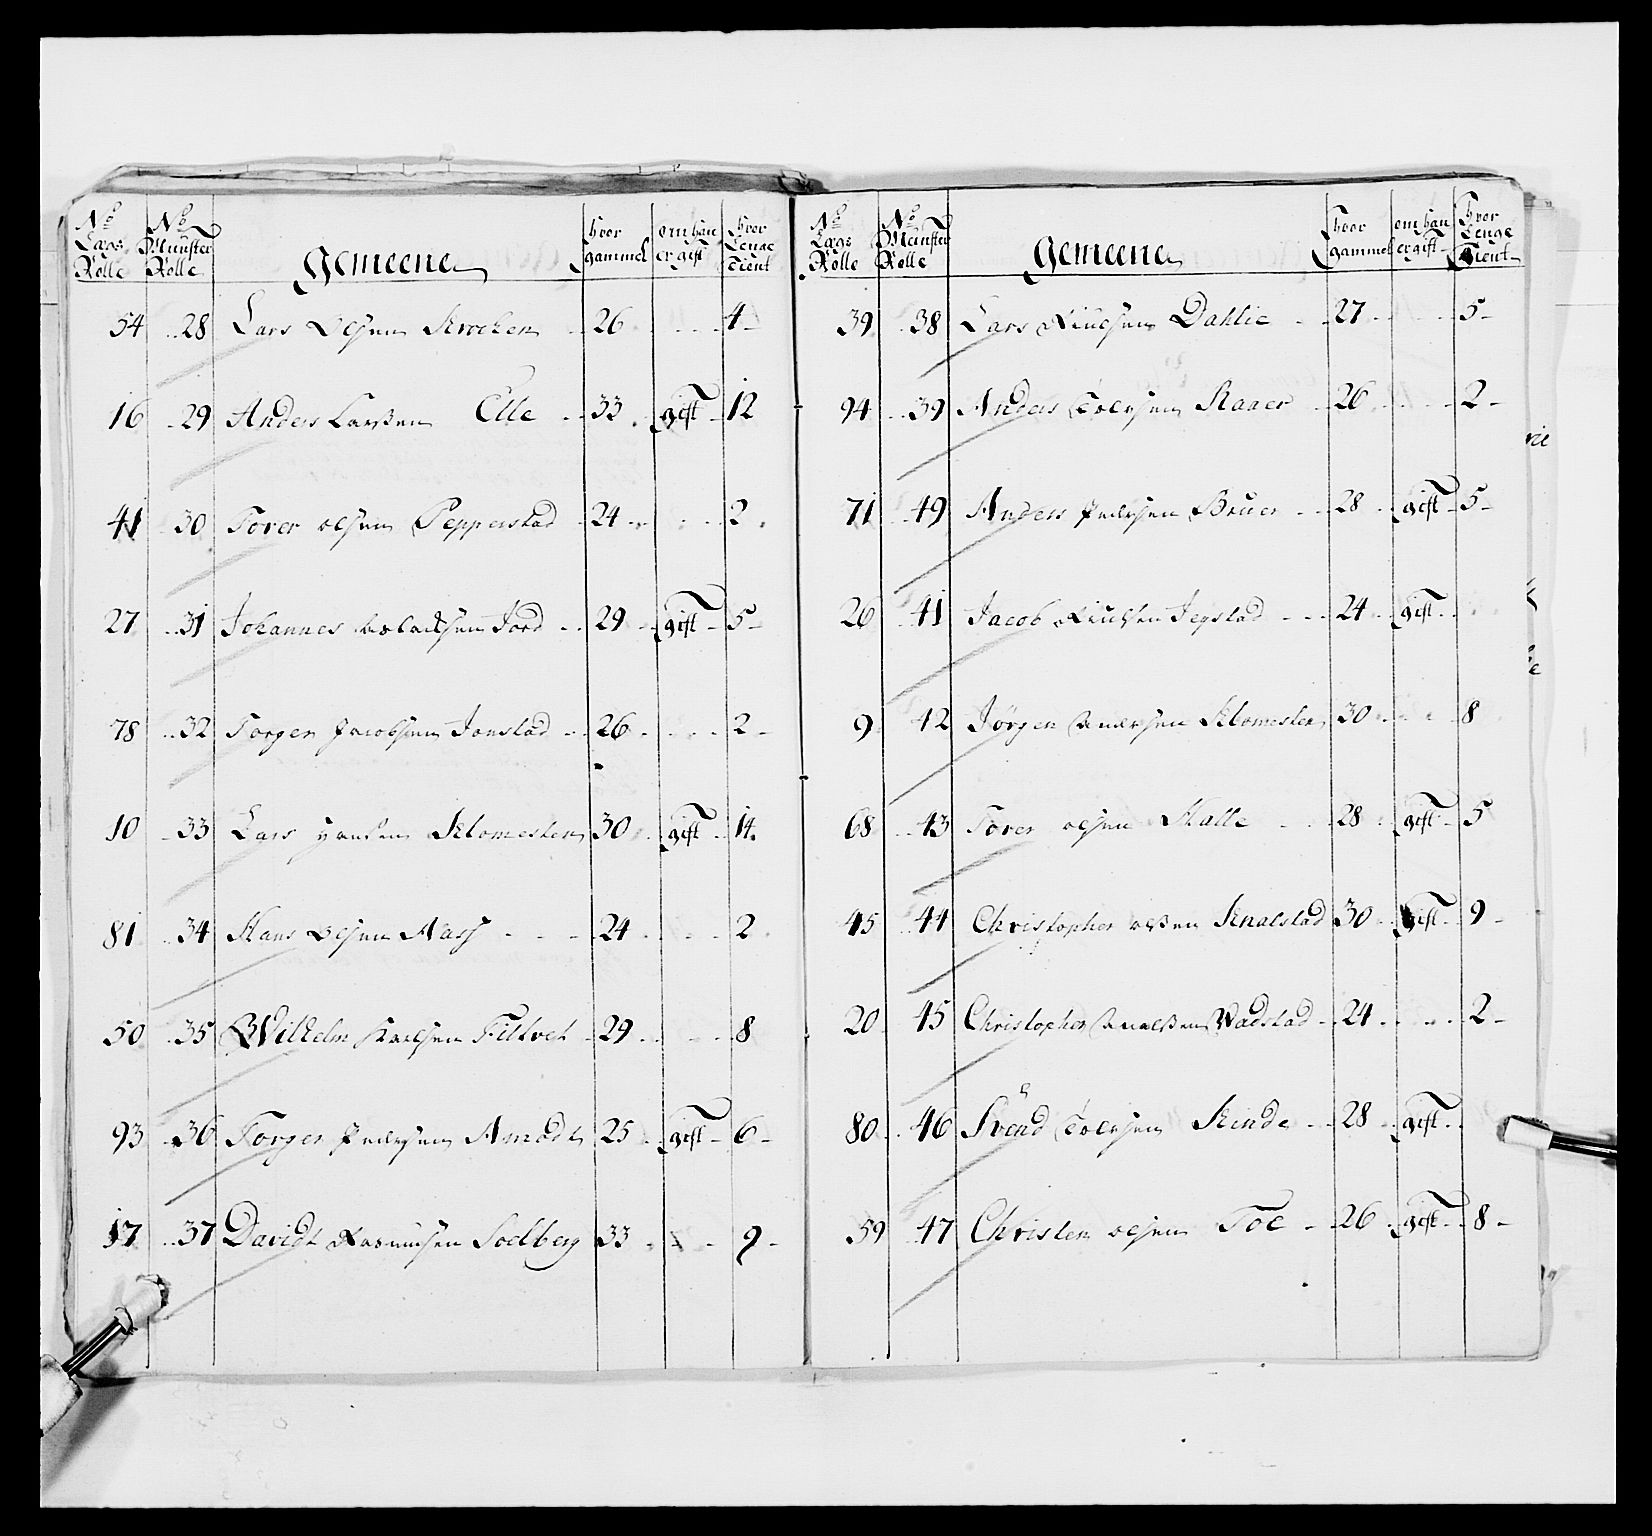 No Lægs Rolle | No Mùnster Rolle | Gemeene | hvor gammel | om han er gift | hvor Lenge Tient
54 28 Lars Olsen Krocken 26 4
16 29 Anders Larsen Elle 33 gift 12
41 30 Torer olsen Pepperstad 24 2
27 31 Johannes Jord 29 gift 5
78 32 Torger Jacobsen Jonstad 26 2
10 33 Lars Hansen Klomesten 30 gift 14
81 34 Hans Olsen Næss 24 2
50 35 Wilhelm Karlsen Filtvet 29 8
93 36 Torger Pedersen Amodt 25 gift 6
17 37 Davidt Rasmusen Soelberg 33 9
No Lægs Rolle | No Münster Rolle | Gemeene | hvor gammel | om han er gift | hvor Lenge Tient
39 38 Lars Knudsen Dahlie 27 5
94 39 Anders Toersen Raaer 26 2
71 49 Anders Pedersen Bruer 28 gift 5
26 41 Jacob Knudsen Jegstad 24 gift
9 42 Jørgen Andersen Klomesten 30 8
68 43 Torer olsen Halle 28 gift 5
45 44 Christopher olsen Knalstad 30 gift 9
20 45 Christopher Wadstad 24 2
80 46 Svend Toersen Kinde 28 gift
59 47 Christen olsen Toe 26 gift 8